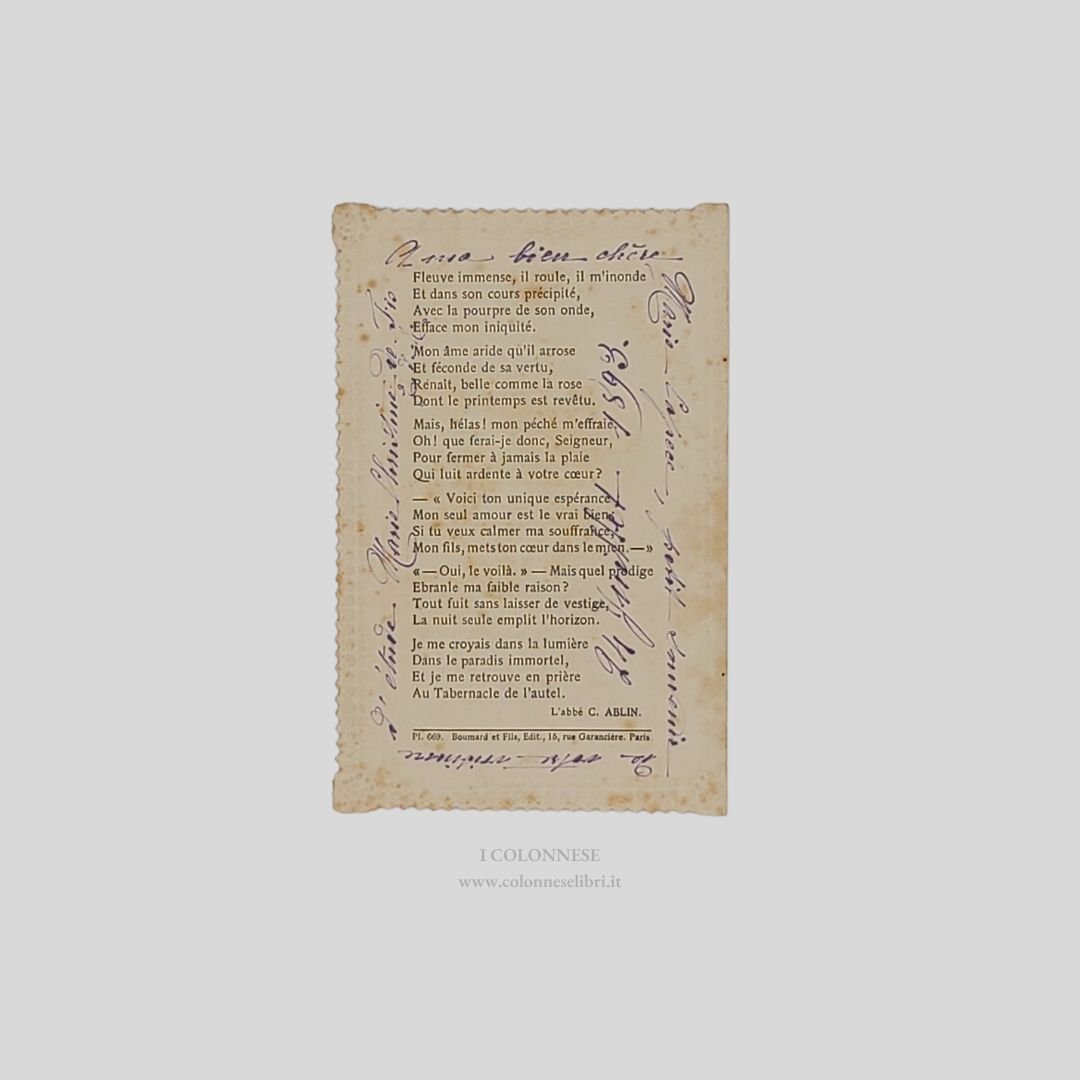 A ma bien chère
Fleuve immense, il roule, il m'inonde
Et dans son cours précipité,
Avec la pourpre de son onde,
Efface mon iniquité.
Mon âme aride qu'il arrose
Et féconde de sa vertu,
Renaît, belle comme la rose
Dont le printemps est revêtu.
Mais, hélas! mon péché m'effraie,
Oh! que ferai-je donc, Seigneur,
Pour fermer à jamais la plaie
Qui luit ardente à votre cœur?
— « Voici ton unique espérance,
Mon seul amour est le vrai bien;
Si tu veux calmer ma souffrance,
Mon fils, mets ton cœur dans le mien. — »
« — Oui, le voilà. » — Mais quel prodige
Ebranle ma faible raison?
Tout fuit sans laisser de vestige,
La nuit seule emplit l'horizon.
Je me croyais dans la lumière
Dans le paradis immortel,
Et je me retrouve en prière
Au Tabernacle de l'autel.
L'abbé C. ABLIN.
Pl. 669. Boumard et Fils, Edit., 15, rue Garancière. Paris
Marie petit souvenir
de votre
d'étude Marie Christine
1893
I COLONNESE
www.colonneselibri.it